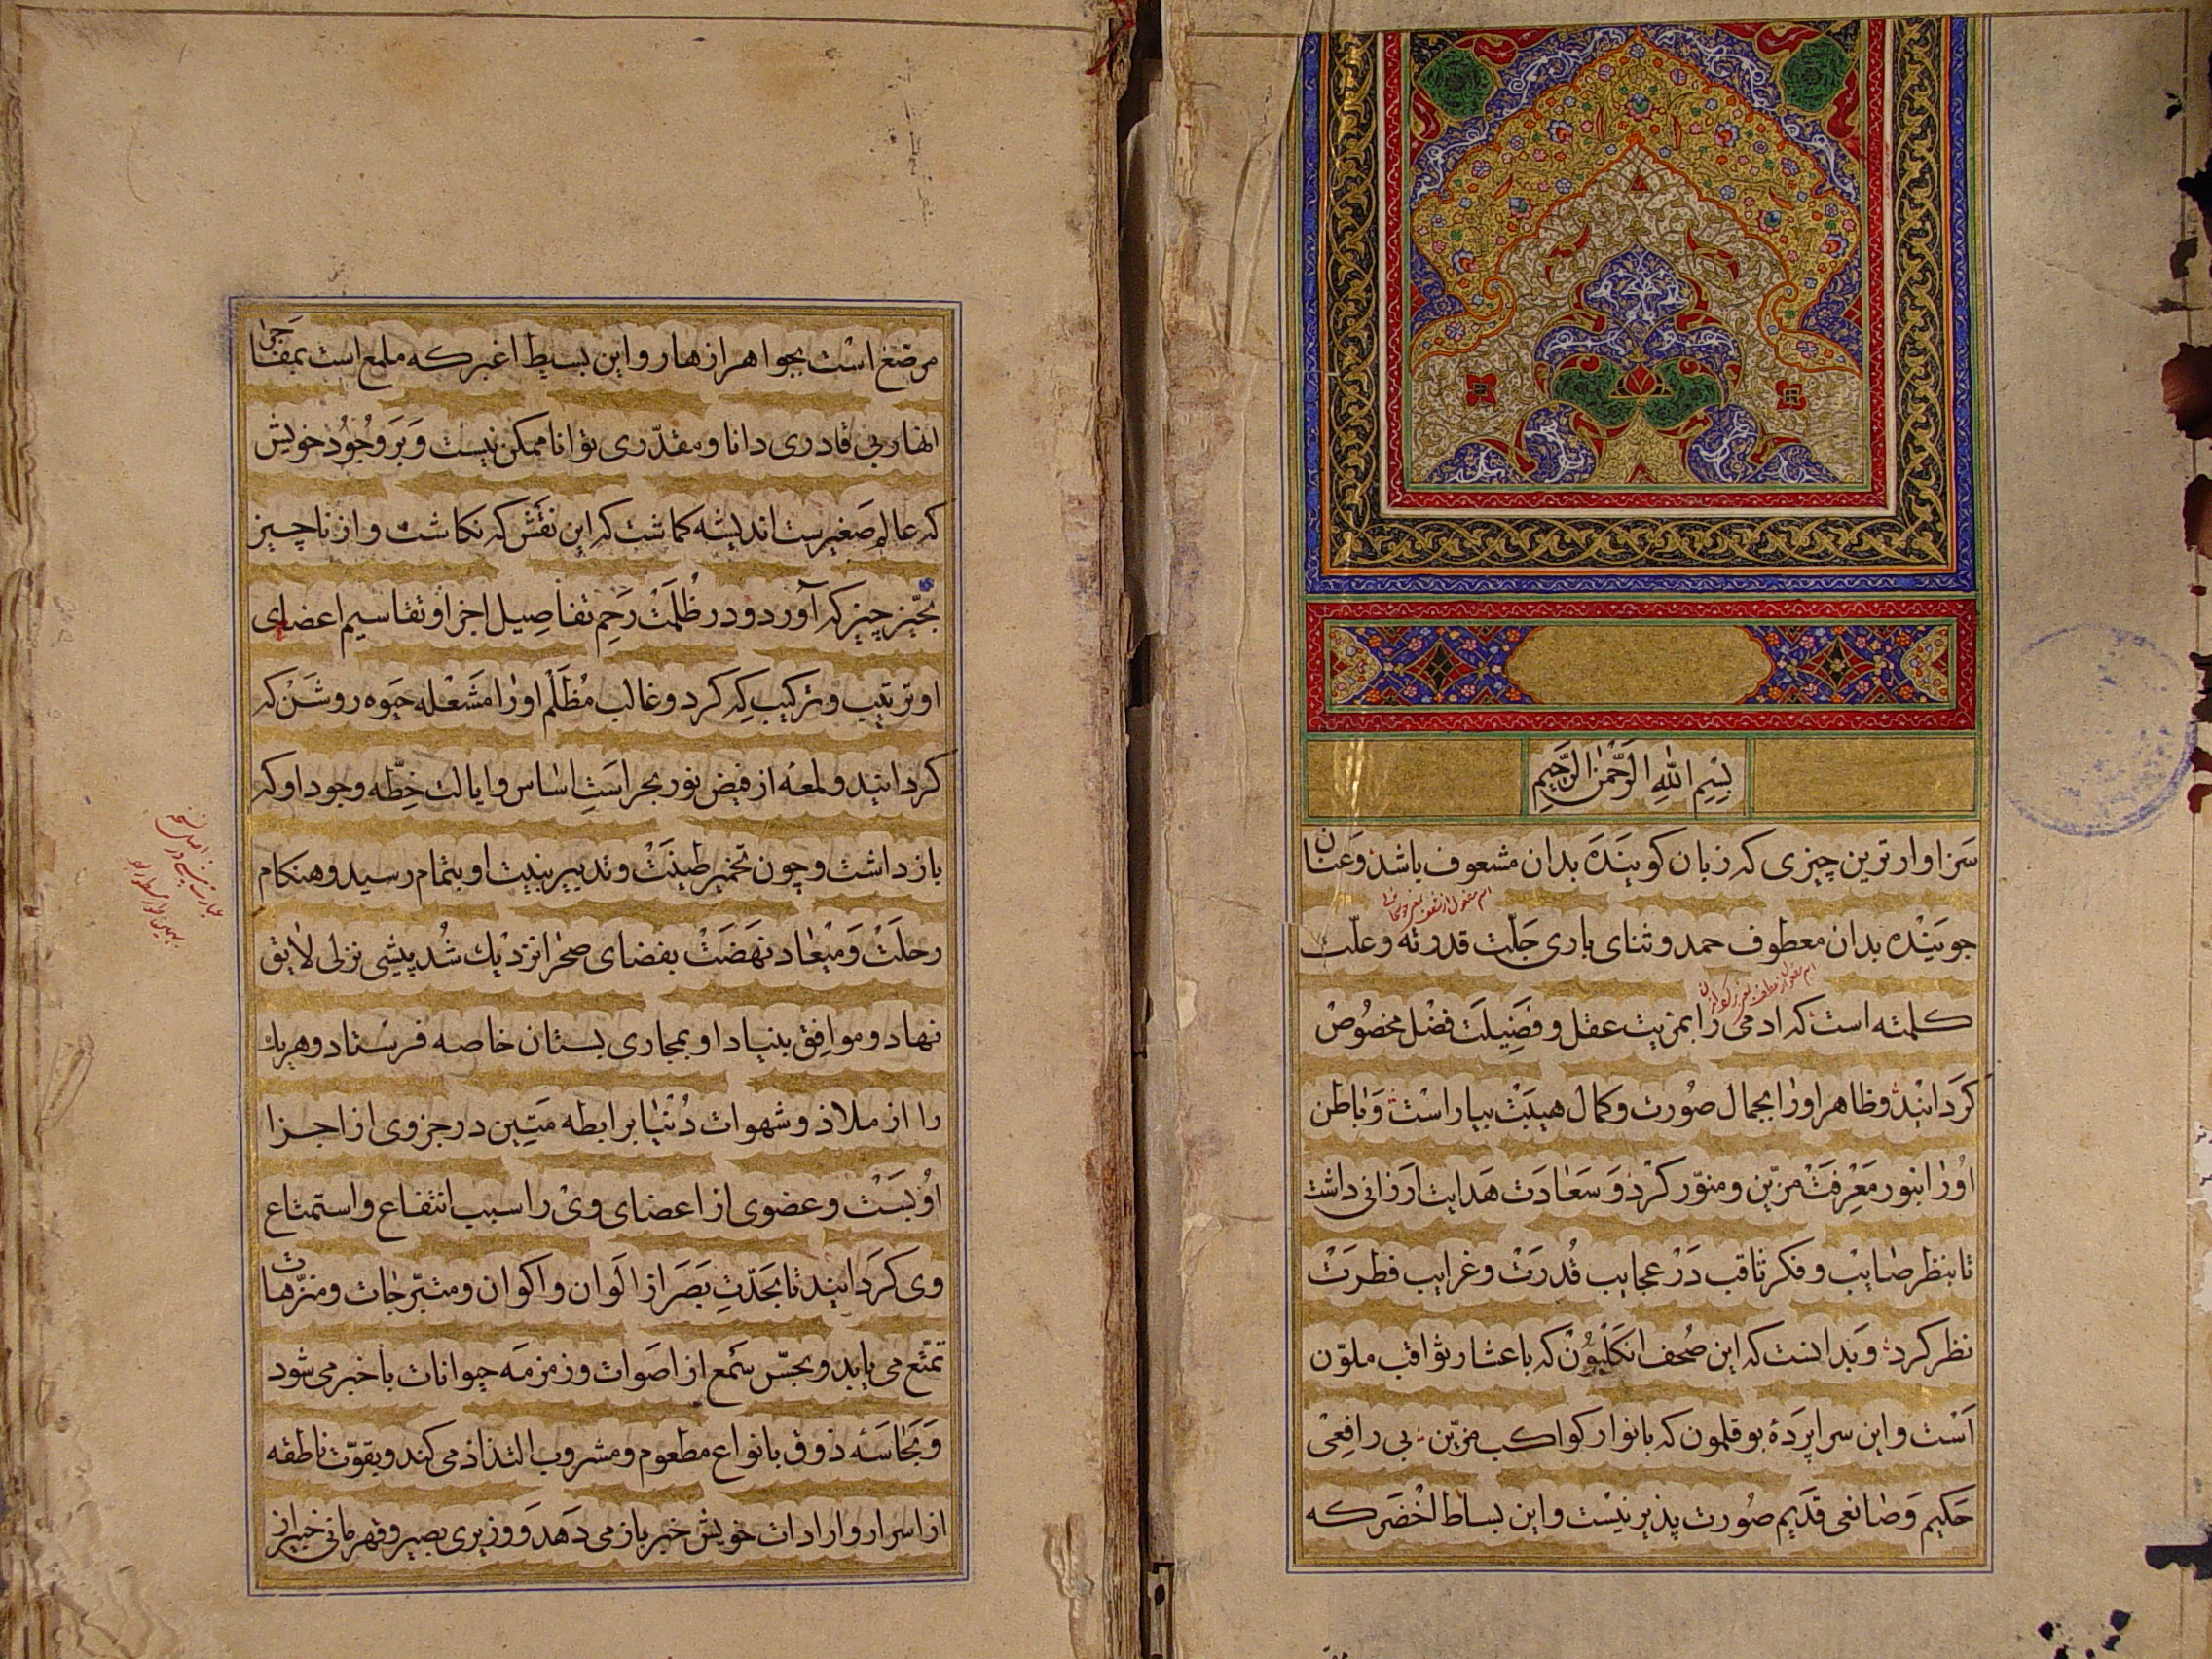 بِسْمِ اللهِ الرَّحْمٰنِ الرَّحِيمِ
سَزاوارترین چیزی که زبان کوینَدَه بدان مشعوف باشذ وَعنان
جویَنْده بدان معطوف حمد و ثنای باری جَلّت قدرته وعلّت
کلمته است که ادمی را بمزیت عقل و فَضِیلَت فضْل مخصُوصْ
کَرَدانیْذ وظاهر اورا بجمال صُورت و کمال هیبَتْ بیاراسْت وَباطن
اوُرا بنور مَعْرِفَتْ مزیّن و منوّر کرْد وَ سَعَادَت هَدایت ارَزانی داشت
تا بنظر صَایبْ و فکر ثاقب دَرْ عجایب قُدرَتْ و غرایب فطرَتْ
نظر کرد وَبدانست که این صُحف انکَلْیوُنْ که باعشار ثواقب ملوّن
اَسْت و این سراپرَدهٔ بوقلمون که بانوار کواکب مزیّن بی رافِعی
حَکیم وَصَانعی قَدَیم صُورت پذیر نیْست و این بساط اخْضَر که
مرصّع است بجواهر ازهار و این بسیط اغبر که ملمع است بمفَاجی
انهار بی قادری دانا و مقدّری توانا ممکن نیست وَ بَر وُجُوُد خویش
که عالم صَغیرست اندیشه کماشت که این نقَش که نکاشت و از ناچیز
بحیّز چیز که آورد و در ظُلْمَتْ رَحِم تفاصِیل اجزا و تقاسیم اعضای
او ترتیب و ترکیب کِه کرد و غالب مُظْلَم اورا مَشَعْله حیوه روشَنْ که
کردانید و لمعه از فیض نور بحراسَتِ اساس و ایالت خِطّه وجود او که
بازداشت و چون تخمیر طینَتْ و تدبیر بنیت او بتمام رسید و هنکام
رحلَتْ وَمیْعاد نهَضَتْ بفضای صحرا نزدْیك شُد پیشی نزلی لایق
نهاد و موافِق بنیاد او بمجاری بستان خاصه فرستاد و هریك
را از ملاذ و شهوات دُنْیا برابطه مَتِین در جزوی از اجزا
اوُ بَسَتْ و عضوی از اعضای ویْ را سبب انتفاع و استمتاع
وی کَرَدانید تا بحَدّتِ بَصَر از الَوان و اکوان و متبّرجات و منزّهات
تمتّع می یابد و بحسّ سَمع از اصَوات و زمزمَه حیوانات با خبر می شود
وَ بحاسَه ذوق بانواع مطعوم و مشروب التذاذ می کند و بقوّت ناطقه
از اسرار و ارادات خویش خبر باز می دَهد وَ وزیری بصیر و قهرمانی خبیر از